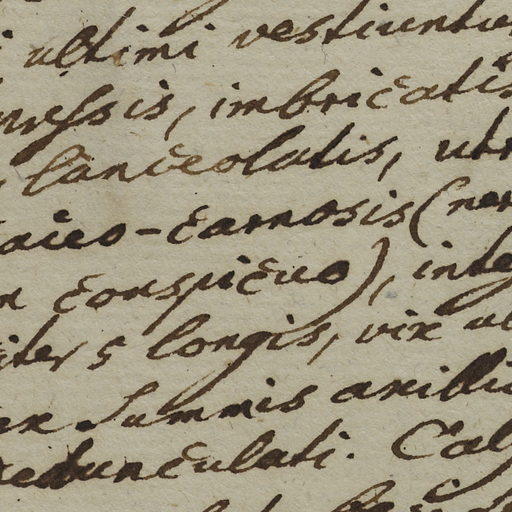 ultimi vestiuntur
pressis, imbricatis
lanceolatis, utr
aceo-carnosis (ner
conspicuo), integ
iter 5 longis, vix ul
ex summis axillis
pedunculati. Cal